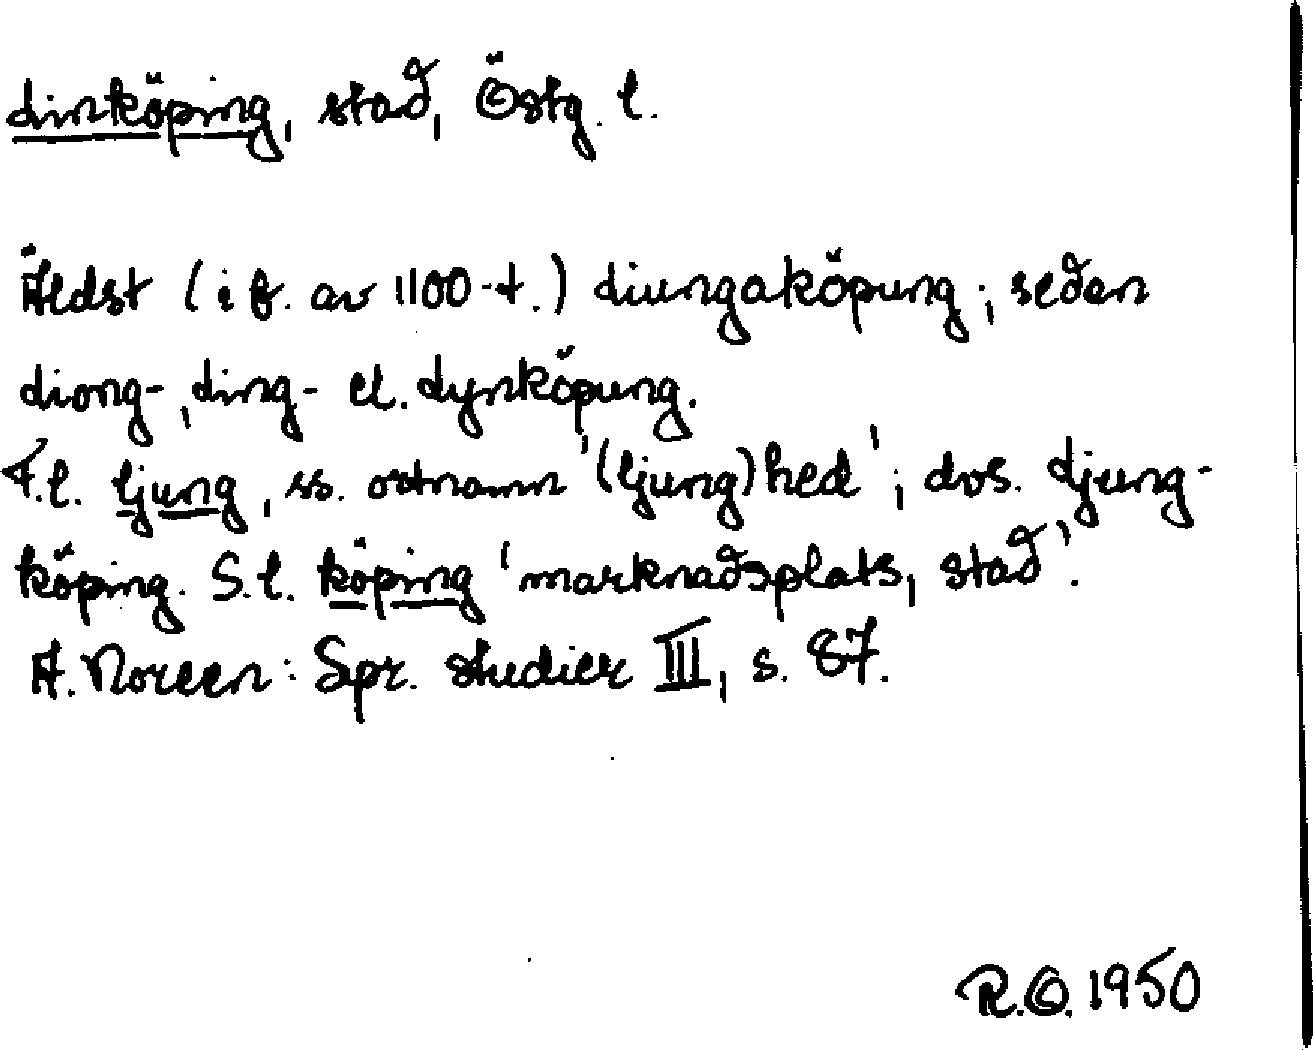 Linköping, stad, Östg. l.
Äldst (i b. av 1100-t.) Liungaköpung; sedan
Liong-, Ling- el. Lynköpung.
F.l. ljung, ss. ortnamn '(ljung)hed'; dvs. Ljung-
köping. S.l. köping 'marknadsplats, stad'.
A. Noreen: Spr. studier III, s. 87.
R.O. 1950